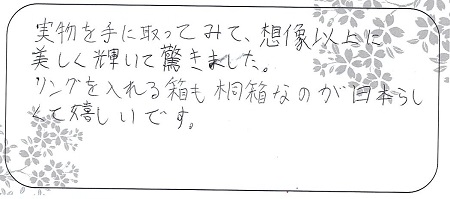 実物を手に取ってみて、想像以上に
美しく輝いて驚きました。
リングを入れる箱も桐箱なのが日本らし
くて嬉しいです。